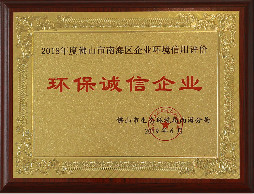 2018年度佛山市南海区企业环境信用评价
环保诚信企业
佛山市生态环境局南海分局
2019年6月